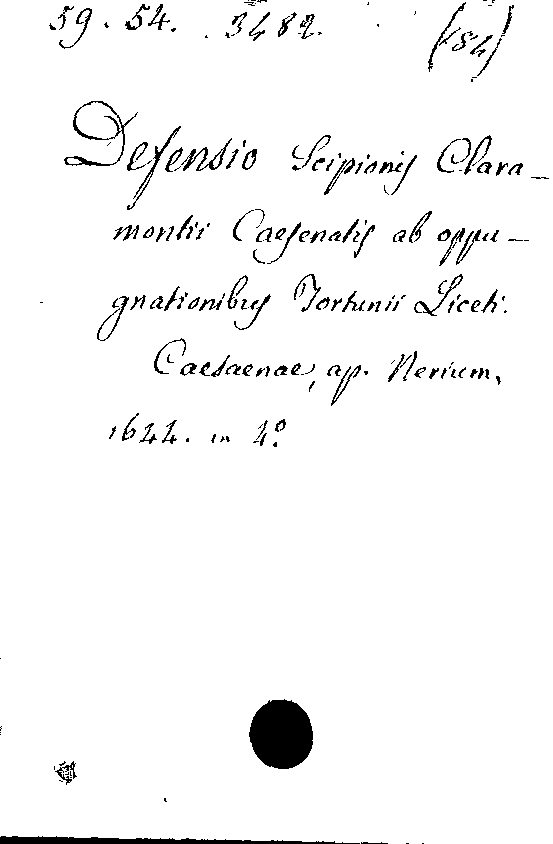 59. 54. 3482. (84)
Defensio Scipionis Clara-
montii Caesenatis ab oppu-
gnationibus Fortunii Liceti.
Caesaenae, ap. Nerium,
1644. in 4º.